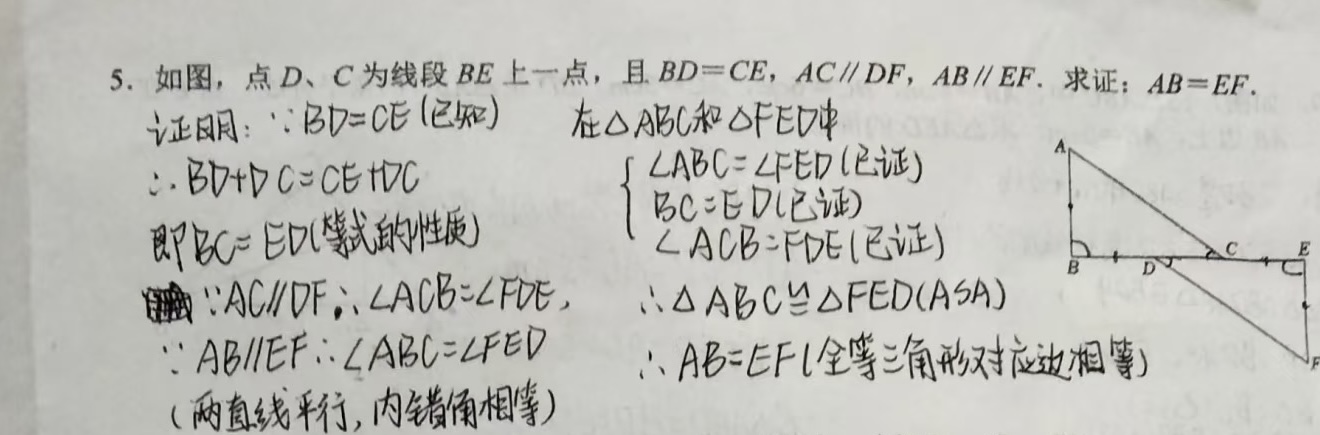 5. 如图，点 D、C 为线段 BE 上一点，且 BD=CE，AC∥DF，AB∥EF. 求证：AB=EF.
证明：∵BD=CE(已知)
∴BD+DC=CE+DC
即BC=ED(等式的性质)
∵AC∥DF，∴∠ACB=∠FDE，
∵AB∥EF∴∠ABC=∠FED
(两直线平行，内错角相等)
在△ABC和△FED中
∠ABC=∠FED(已证)
BC=ED(已证)
∠ACB=FDE(已证)
∴△ABC≌△FED(ASA)
∴AB=EF(全等三角形对应边相等)
A
B
D
C
E
F